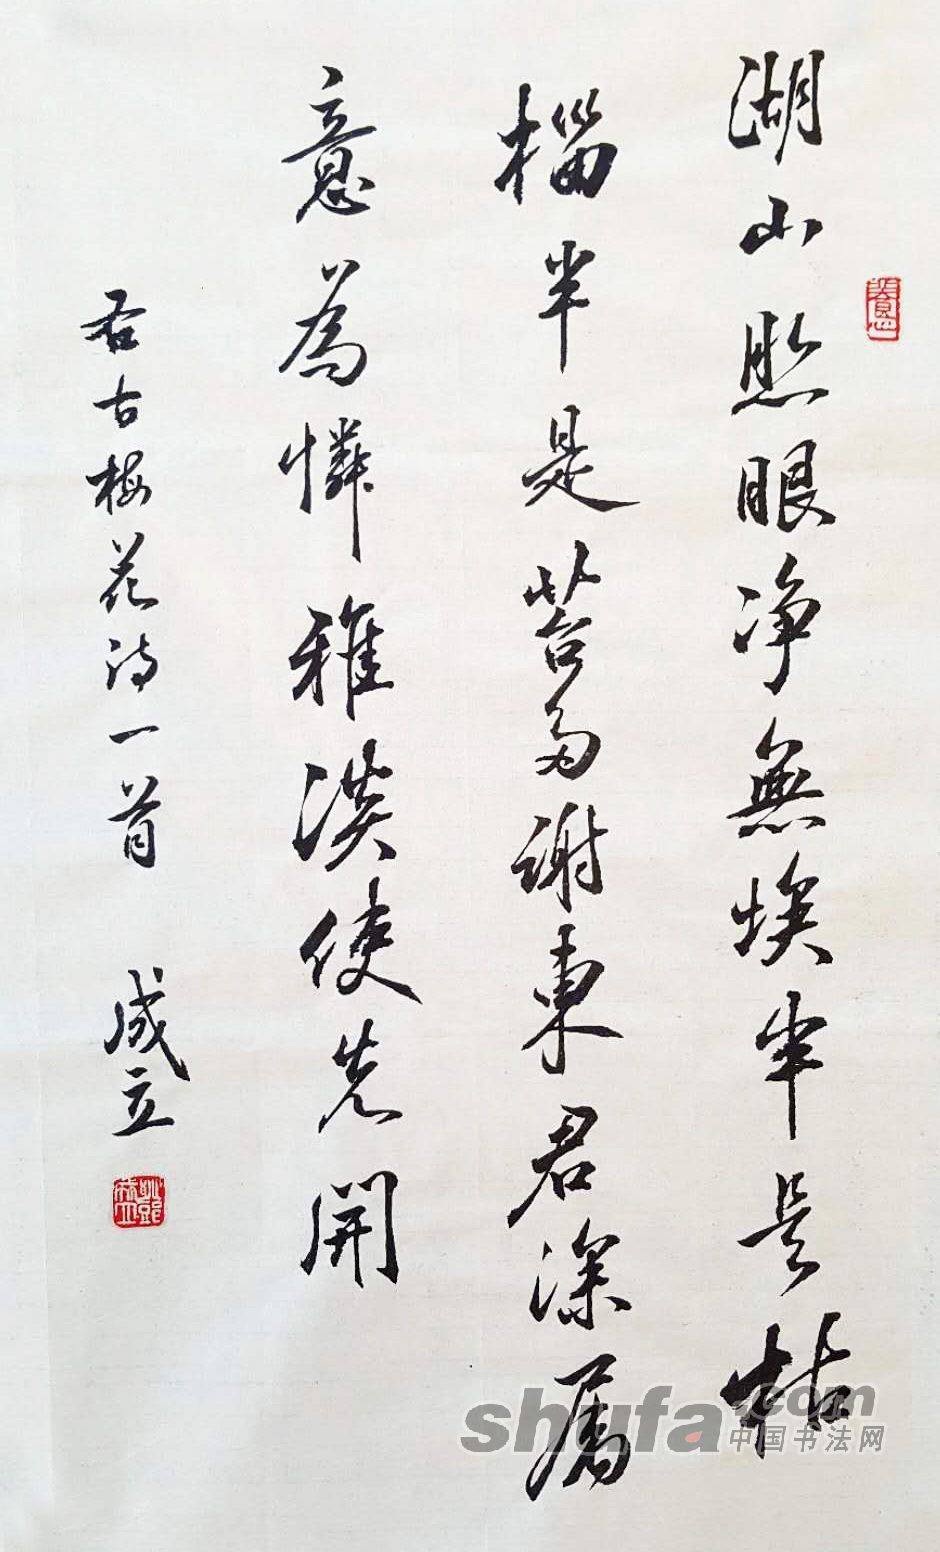 湖山照眼净無埃半是枯
椔半是苔多謝東君深屬
意為憐雅淡使先開
右古梅花诗一首 成立
shufa.com
中国书法网